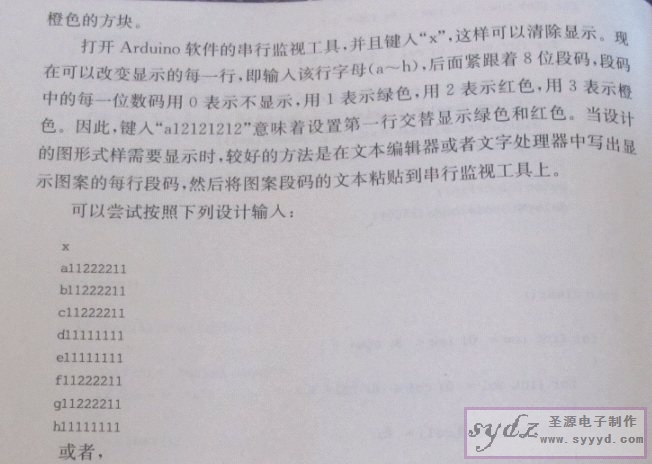 橙色的方块。
打开 Arduino 软件的串行监视工具,并且键入“x”,这样可以清除显示。现
在可以改变显示的每一行,即输入该行字母(a～h),后面紧跟着 8 位段码,段码
中的每一位数码用 0 表示不显示,用 1 表示绿色,用 2 表示红色,用 3 表示橙
色。因此,键入“a12121212”意味着设置第一行交替显示绿色和红色。当设计
的图形式样需要显示时,较好的方法是在文本编辑器或者文字处理器中写出显
示图案的每行段码,然后将图案段码的文本粘贴到串行监视工具上。
可以尝试按照下列设计输入:
x
a11222211
b11222211
c11222211
d11111111
e11111111
f11222211
g11222211
h11111111
或者,
sydz 圣源电子制作
www.syyyd.com